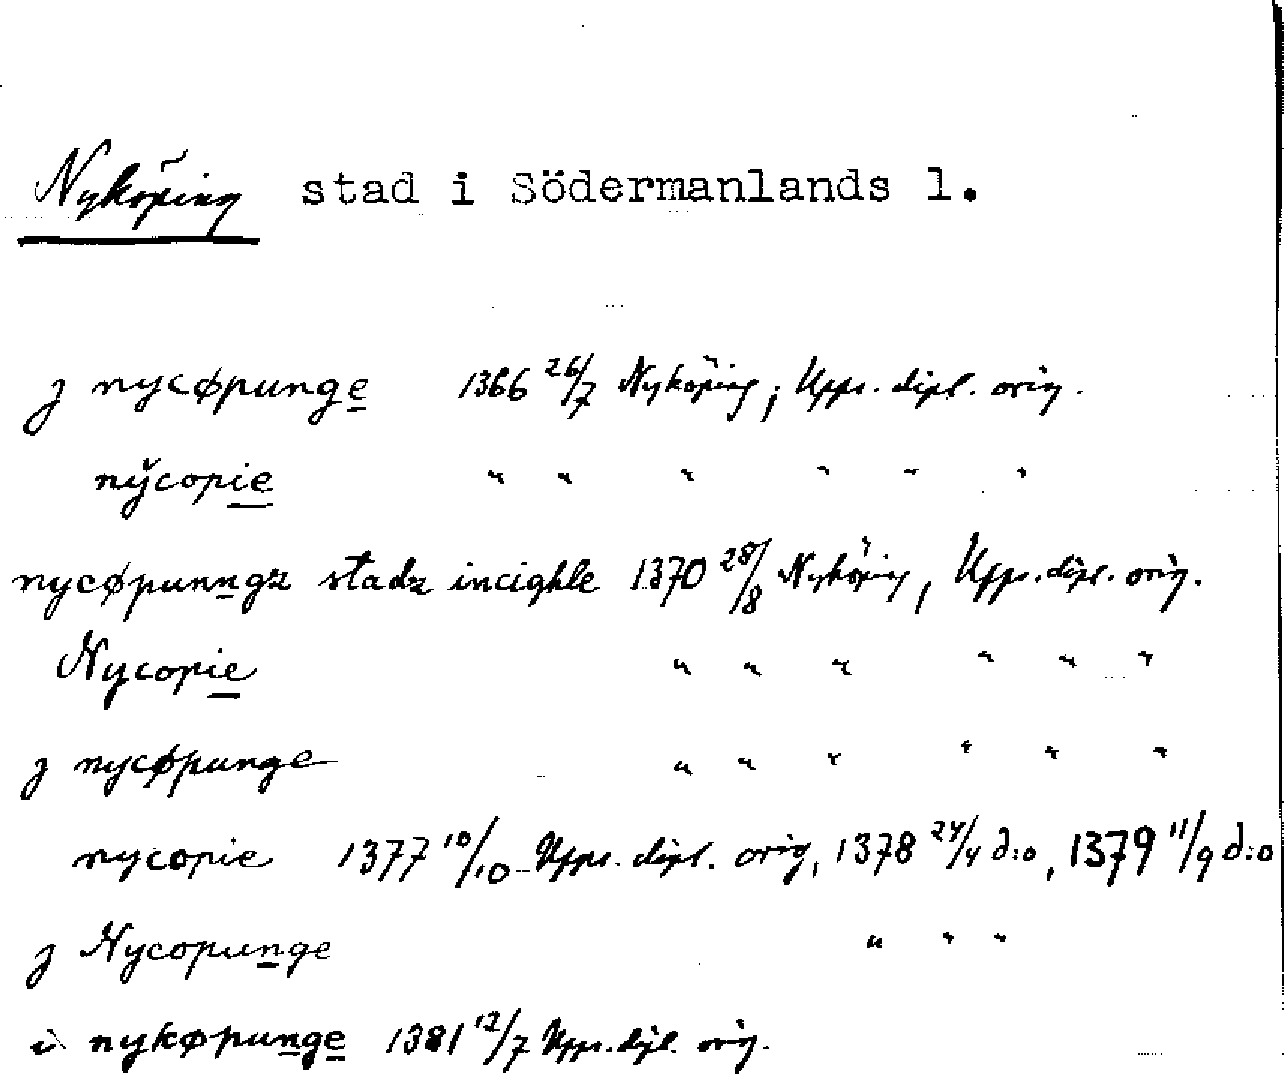 Nyköping stad i Södermanlands l.
j nycøpunge 1366 26/7 Nyköping; Upps. dipl. orig.
nÿcopie " " " " " "
nycøpunngz stadz incighle 1370 28/8 Nyköping, Upps. dipl. orig.
Nycopie " " " " " "
j nycøpunge " " " " " "
nycopie 1377 10/10 Upps. dipl. orig, 1378 24/4 d:o, 1379 11/9 d:o
j Nycopunge " " "
i nykøpunge 1381 12/7 Upps. dipl. orig.